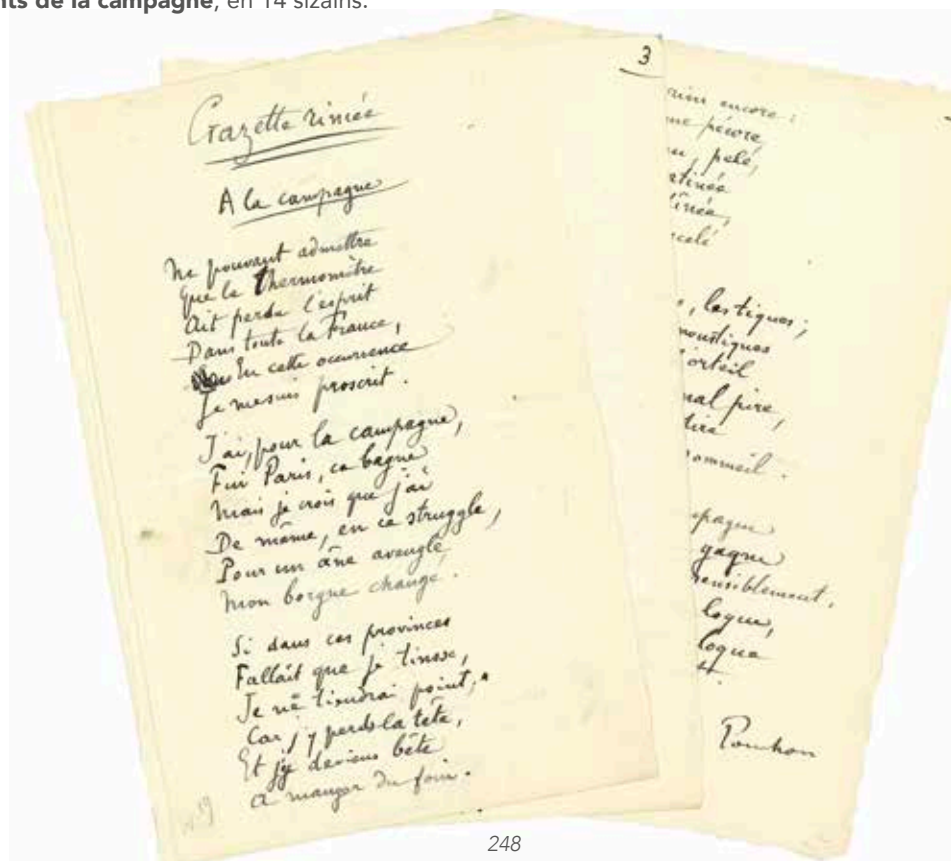 nts de la campagne, en 14 sizains.
3
Gazette rimée
A la campagne
Ne pouvant admettre
Que le Thermomètre
Ait perdu l'esprit
Dans toute la France,
En cette occurrence
Je me suis proscrit.
J'ai, pour la campagne,
Fui Paris, ce bagne
Mais je crois que j'ai
De même, en ce struggle,
Pour un âne aveugle
Mon borgne changé.
Si dans ces provinces
Fallait que je tinsse,
Je ne tiendrai point,
Car j'y perds la tête,
Et j'y deviens bête
A manger du foin.
encore :
pécore,
pelé,
celé
, les tiques ;
moustiques
orteil
pire,
tire
ommeil.
pagne
gagne
sensiblement,
logue,
logue
t.
Ponchon
248